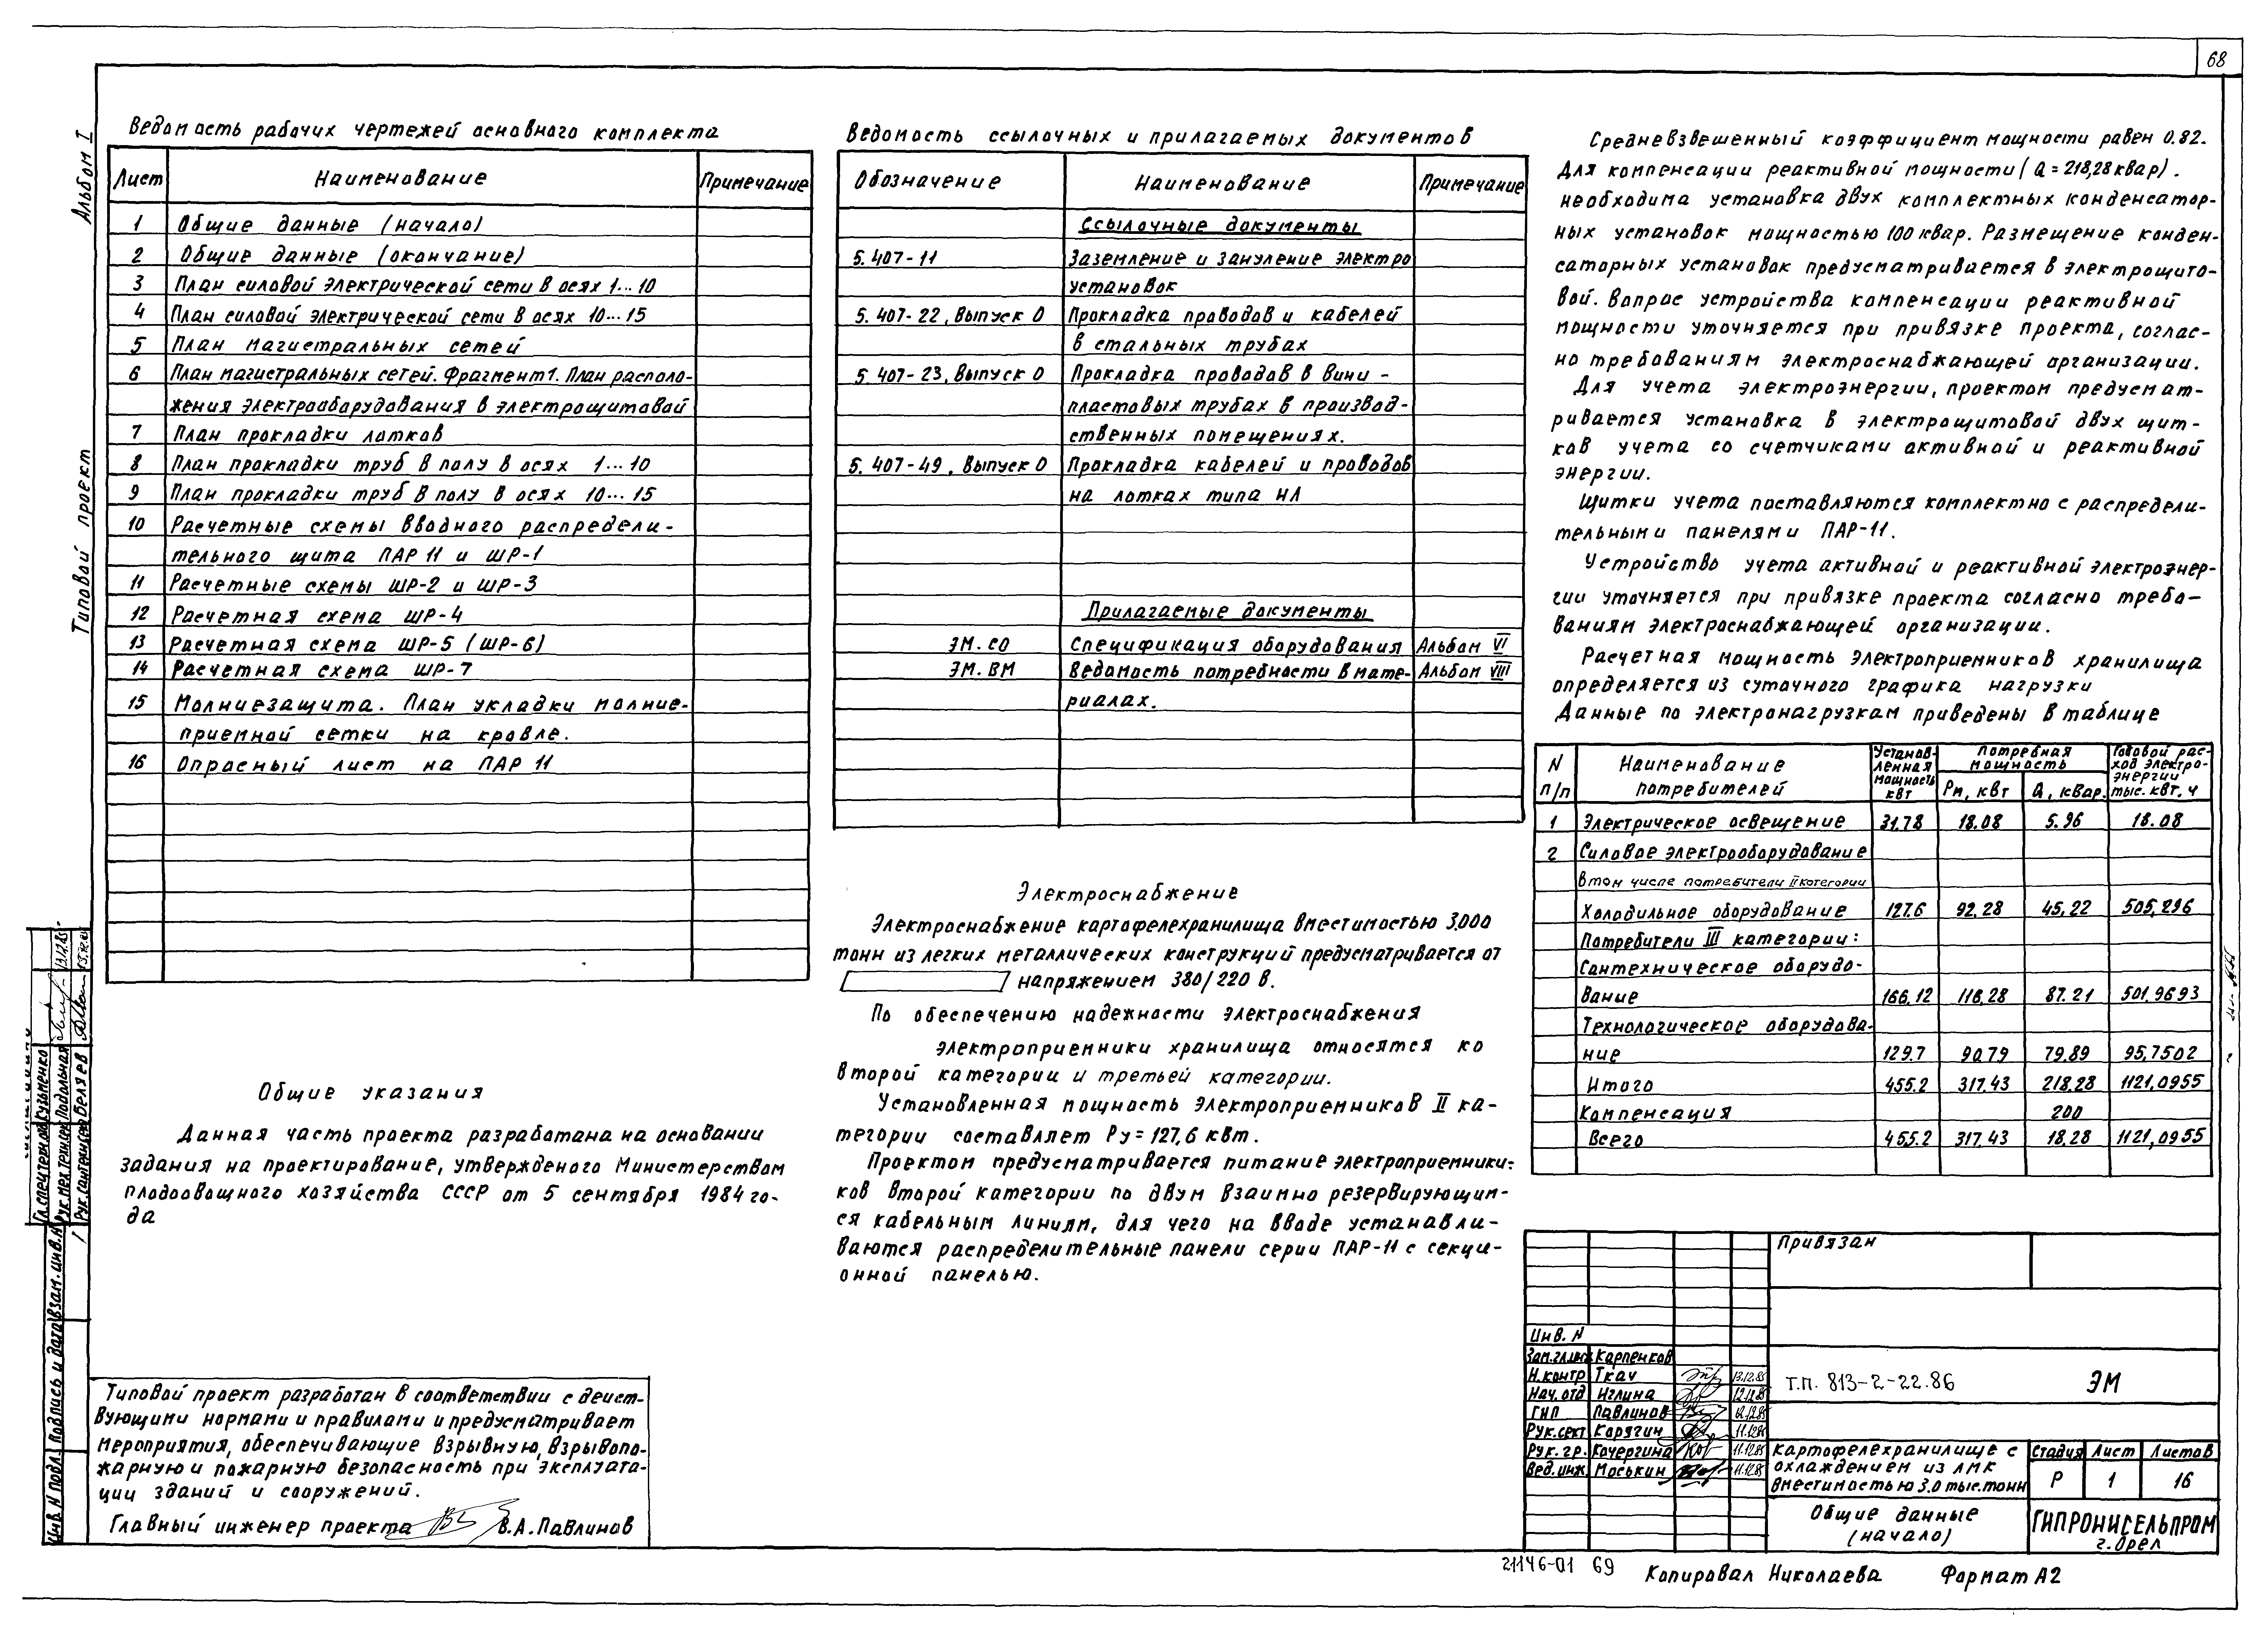 68
Альбом I
Типовой проект
Ведомость рабочих чертежей основного комплекта
Лист Наименование Примечание
1 Общие данные (начало)
2 Общие данные (окончание)
3 План силовой электрической сети в осях 1...10
4 План силовой электрической сети в осях 10...15
5 План магистральных сетей
6 План магистральных сетей. Фрагмент 1. План располо-
жения электрооборудования в электрощитовой
7 План прокладки лотков
8 План прокладки труб в полу в осях 1...10
9 План прокладки труб в полу в осях 10...15
10 Расчетные схемы вводного распредели-
тельного щита ПАР 11 и ШР-1
11 Расчетные схемы ШР-2 и ШР-3
12 Расчетная схема ШР-4
13 Расчетная схема ШР-5 (ШР-6)
14 Расчетная схема ШР-7
15 Молниезащита. План укладки молние-
приемной сетки на кровле.
16 Опросный лист на ПАР 11
Общие указания
Данная часть проекта разработана на основании
задания на проектирование, утвержденого Министерством
плодоовощного хозяйства СССР от 5 сентября 1984 го-
да
Типовой проект разработан в соответствии с дейст-
вующими нормами и правилами и предусматривает
мероприятия, обеспечивающие взрывную, взрывопо-
жарную и пожарную безопасность при эксплуата-
ции зданий и сооружений.
Главный инженер проекта В.А. Павлинов
Ведомость ссылочных и прилагаемых документов
Обозначение Наименование Примечание
Ссылочные документы
5.407-11 Заземление и зануление электро
установок
5.407-22, Выпуск 0 Прокладка проводов и кабелей
в стальных трубах
5.407-23, Выпуск 0 Прокладка проводов в вини-
пластовых трубах в производ-
ственных помещениях.
5.407-49, Выпуск 0 Прокладка кабелей и проводов
на лотках типа НЛ
Прилагаемые документы
ЭМ.СО Спецификация оборудования Альбом VI
ЭМ.ВМ Ведомость потребности в мате- Альбом VIII
риалах.
Электроснабжение
Электроснабжение картофелехранилища вместимостью 3.000
тонн из легких металлических конструкций предусматривается от
напряжением 380/220 В.
По обеспечению надежности электроснабжения
электроприемники хранилища относятся ко
второй категории и третьей категории.
Установленная мощность электроприемников II ка-
тегории составляет Ру=127,6 квт.
Проектом предусматривается питание электроприемники-
ков второй категории по двум взаимно резервирующим-
ся кабельным линиям, для чего на вводе устанавли-
ваются распределительные панели серии ПАР-11 с секци-
онной панелью.
Средневзвешенный коэффициент мощности равен 0.82.
Для компенсации реактивной мощности (Q=218,28 квар).
необходима установка двух комплектных конденсатор-
ных установок мощностью 100 квар. Размещение конден-
саторных установок предусматривается в электрощито-
вой. Вопрос устройства компенсации реактивной
мощности уточняется при привязке проекта, соглас-
но требованиям электроснабжающей организации.
Для учета электроэнергии, проектом предусмат-
ривается установка в электрощитовой двух щит-
ков учета со счетчиками активной и реактивной
энергии.
Щитки учета поставляются комплектно с распредели-
тельными панелями ПАР-11.
Устройство учета активной и реактивной электроэнер-
гии уточняется при привязке проекта согласно требо-
ваниям электроснабжающей организации.
Расчетная мощность электроприемников хранилища
определяется из суточного графика нагрузки
Данные по электронагрузкам приведены в таблице
N п/п Наименование потребителей Установ-ленная мощность квт Потребная мощность Рм, квт Q, квар. Годовой рас-ход электро-энергии тыс. квт. ч
1 Электрическое освещение 31.78 18.08 5.96 18.08
2 Силовое электрооборудование
в том числе потребители II категории
Холодильное оборудование 127.6 92.28 45,22 505,296
Потребители III категории:
Сантехническое оборудо-
вание 166.12 116.28 87.21 501.9693
Технологическое оборудова-
ние 129.7 90.79 79.89 95,7502
Итого 455.2 317.43 218.28 1121,0955
Компенсация 200
Всего 455.2 317.43 18.28 1121,0955
Привязан
Инв. N
Зам.гл.инж Карпенков
Н.контр Ткач 13.12.85
Нач. отд Иглина 12.12.85
ГИП Павлинов 12.12.85
Рук.сект Карягин 11.12.85
Рук. гр. Кочергина 11.12.85
Вед.инж. Моськин 11.12.85
Т.П. 813-2-22.86 ЭМ
Картофелехранилище с
охлаждением из ЛМК
вместимостью 3.0 тыс.тонн
Стадия Лист Листов
Р 1 16
Общие данные
(начало)
ГИПРОНИСЕЛЬПРОМ
г. Орел
21146-01 69
Копировал Николаева Формат А2
Гл.спец.техн.отд Кузьменко
Рук.мех.технич Подольная 13.12.85
Рук.сантехн.сек Беляев
Инв. N подл. Подпись и дата Взам. инв. N